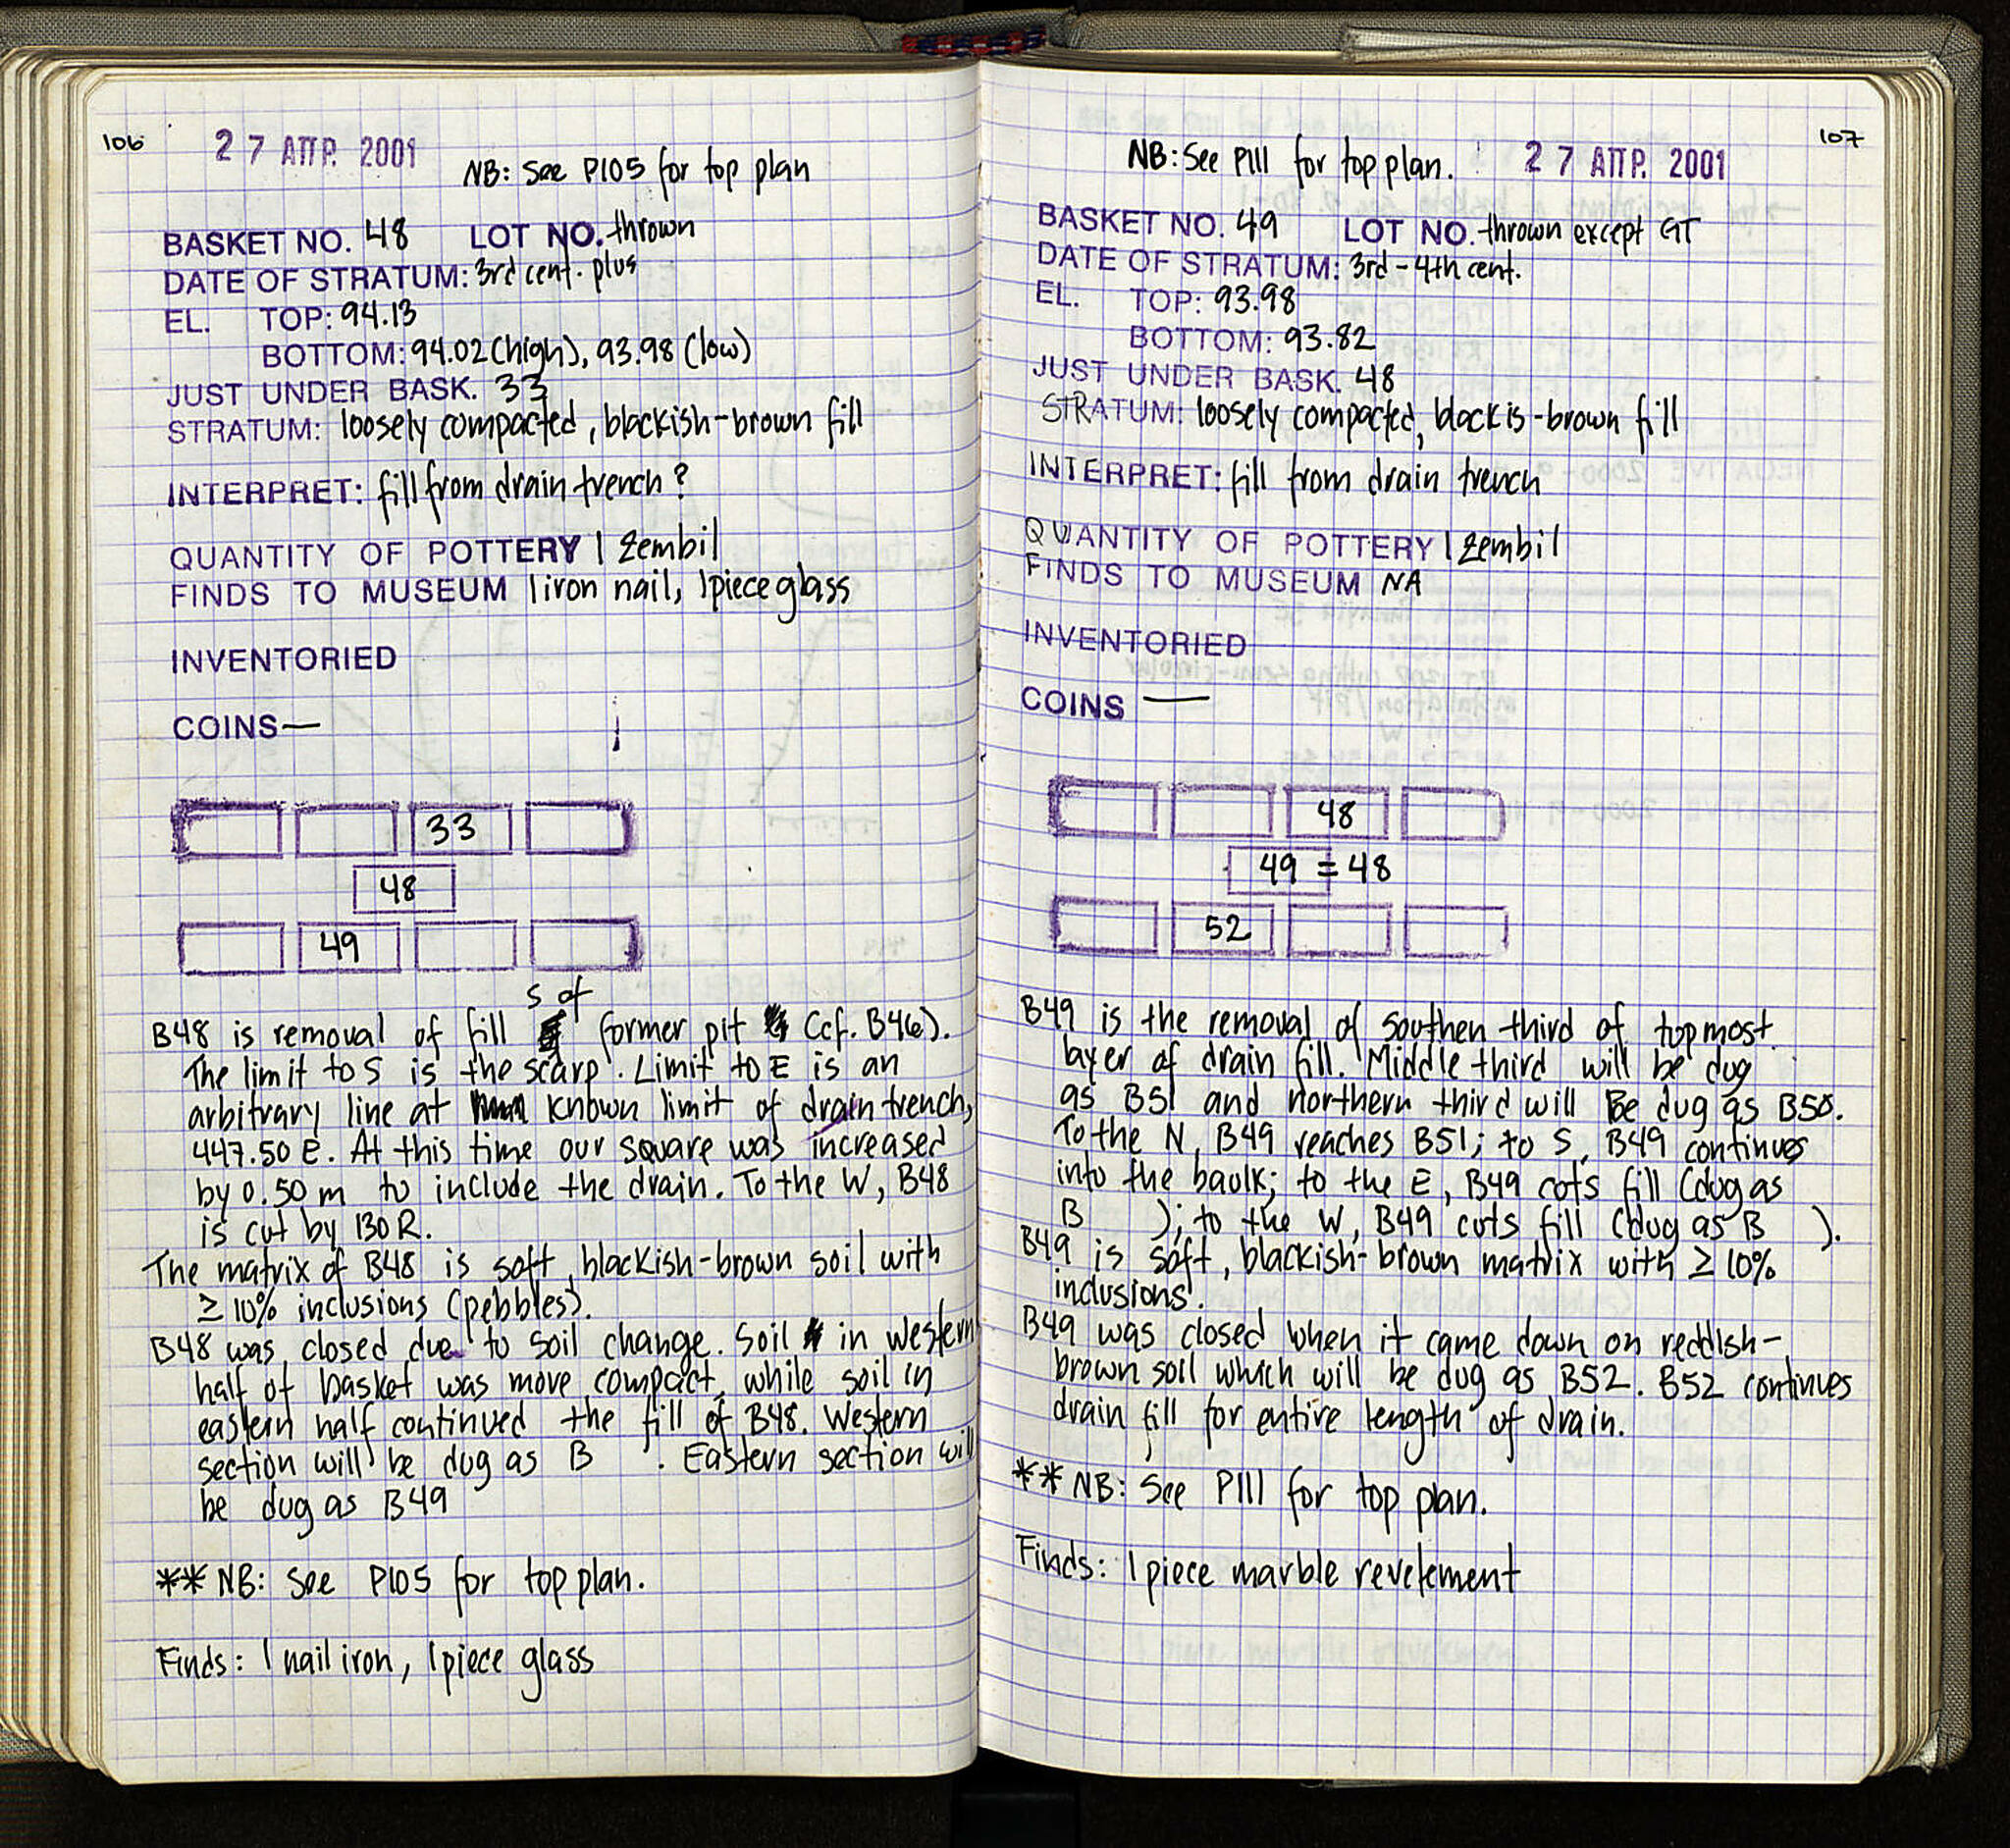 106
27 ΑΠΡ. 2001
NB: See P105 for top plan
BASKET NO. 48 LOT NO. thrown
DATE OF STRATUM: 3rd cent. plus
EL. TOP: 94.13
BOTTOM: 94.02 (high), 93.98 (low)
JUST UNDER BASK. 33
STRATUM: loosely compacted, blackish-brown fill
INTERPRET: fill from drain trench?
QUANTITY OF POTTERY 1 zembil
FINDS TO MUSEUM 1 iron nail, 1 piece glass
INVENTORIED
COINS —
33
48
49
S of
B48 is removal of fill former pit (cf. B46).
The limit to S is the scarp. Limit to E is an
arbitrary line at known limit of drain trench,
447.50 E. At this time our square was increased
by 0.50 m to include the drain. To the W, B48
is cut by 130R.
The matrix of B48 is soft, blackish-brown soil with
≥ 10% inclusions (pebbles).
B48 was closed due to soil change. Soil in western
half of basket was more compact, while soil in
eastern half continued the fill of B48. Western
section will be dug as B . Eastern section will
be dug as B49
** NB: See P105 for top plan.
Finds: 1 nail iron, 1 piece glass
107
NB: See P111 for top plan. 27 ΑΠΡ. 2001
BASKET NO. 49 LOT NO. thrown except GT
DATE OF STRATUM: 3rd-4th cent.
EL. TOP: 93.98
BOTTOM: 93.82
JUST UNDER BASK. 48
STRATUM: loosely compacted, blackis-brown fill
INTERPRET: fill from drain trench
QUANTITY OF POTTERY 1 zembil
FINDS TO MUSEUM NA
INVENTORIED
COINS —
48
49 = 48
52
B49 is the removal of southen third of topmost
layer of drain fill. Middle third will be dug
as B51 and northern third will be dug as B50.
To the N, B49 reaches B51; to S, B49 continues
into the baulk; to the E, B49 cuts fill (dug as
B ); to the W, B49 cuts fill (dug as B ).
B49 is soft, blackish-brown matrix with ≥ 10%
inclusions.
B49 was closed when it came down on reddish-
brown soil which will be dug as B52. B52 continues
drain fill for entire length of drain.
** NB: See P111 for top plan.
Finds: 1 piece marble revetement